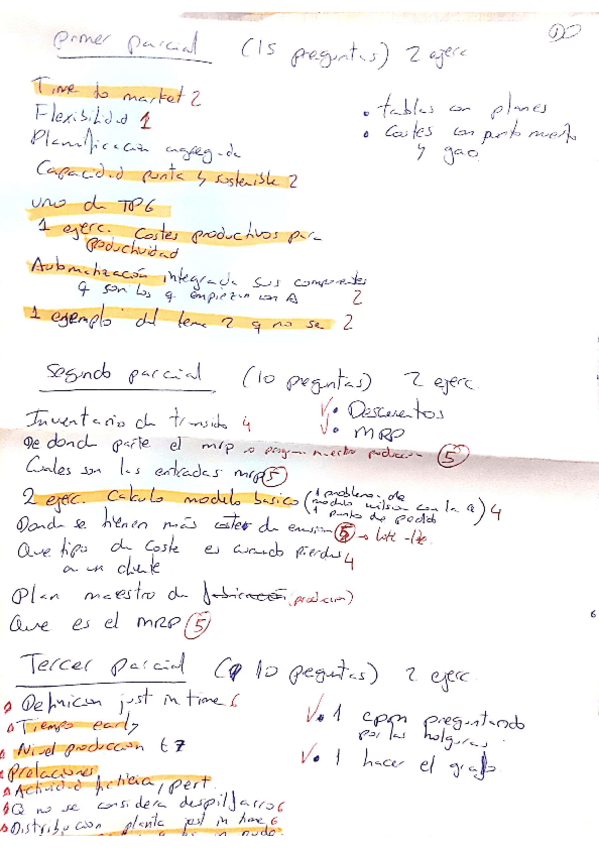 primer parcial (15 preguntas) 2 ejerc
Time to market 2
Flexibilidad 1
Planificación agregada
Capacidad punta y sostenible 2
uno de TP6
1 ejerc. Costes productivos para
productividad
Automatización integrada sus componentes
q son los q empiezan con A 2
1 ejemplo del tema 2 q no sea 2
• tablas con planes
• Costes con punto muerto
y gao
Segundo parcial (10 preguntas) 2 ejerc.
Inventario de transito 4
De donde parte el mrp programa maestro produccion 5
Cuales son las entradas mrp 5
2 ejerc. Calculo modelo basico (1 problema de
modelo wilson con la Q
1 punto de pedido) 4
Donde se tienen más costes de emisión 5 → lote
Que tipo de coste es cuando pierdes 4
a un cliente
Plan maestro de (produccion)
Que es el MRP 5
V • Descuentos
V • MRP
6
Tercer parcial (10 peguntas) 2 ejerc.
Definicion just in time 6
Tiempo early
Nivel produccion t 7
Prelaciones
Actividad ficticia, pert.
Q no se considera despilfarro 6
Distribucion planta just in time 6
V • 1 cpm preguntando
por las holguras
V • 1 hacer el grafo